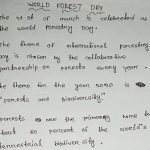 WORLD FOREST DAY
The 21 st of march is celebrated as
the world Forestry Day.
The theme of international Forestry
Day is chosen by the collaborative
partnership on forests every year.
The theme for the year 2020 is
" Forests and biodiversity."
Forests are the primary home to
about 80 percent of the world's
terrestrial biodiversity.